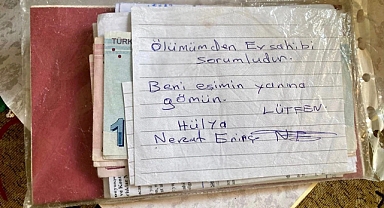 TÜRK
Ölümümden Ev sahibi
sorumludur.
Beni eşimin yanına
gömün.
LÜTFEN.
Hülya
Nevzat
1